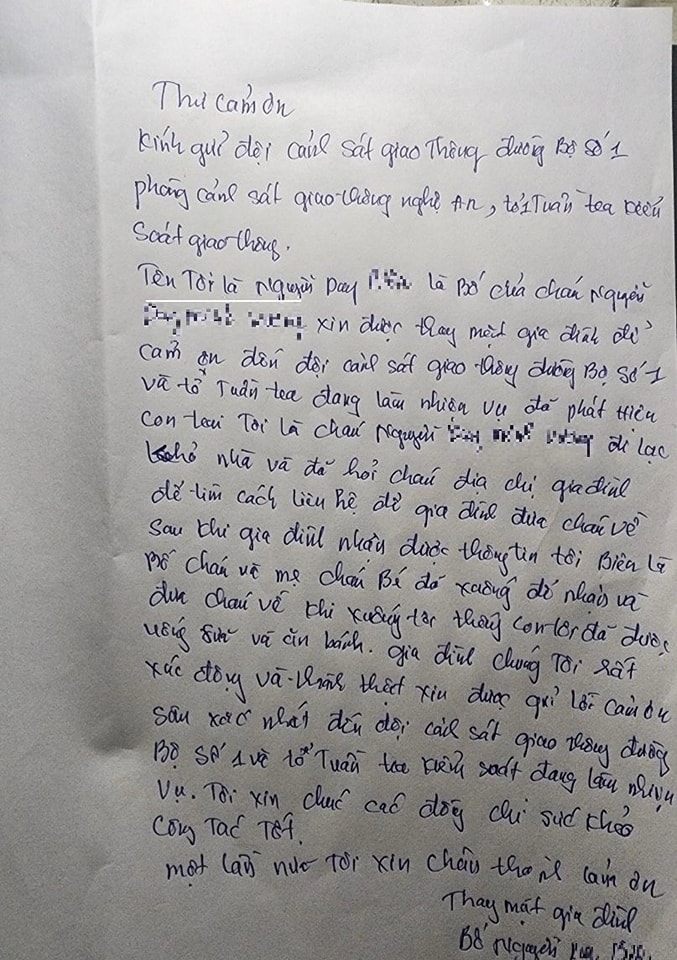 Thư cảm ơn
Kính gửi đội cảnh sát giao Thông đường Bộ Số 1
phòng cảnh sát giao thông nghệ An, tổ 1 Tuần tea kiểm
Soát giao thông.
Tên Tôi là Nguyễn Duy là Bố của cháu Nguyễn
xin được thay mặt gia đình để
cảm ơn đến đội cảnh sát giao thông đường Bộ Số 1
và tổ Tuần tea đang làm nhiên vụ đã phát hiện
con teai Tôi là cháu Nguyễn đi lạc
khỏ nhà và đã hỏi cháu địa chỉ gia đình
để tìm cách liên hệ để gia đình đưa cháu về
Sau khi gia đình nhận được thông tin tôi Biên là
Bố cháu và mẹ cháu Bé đã xuống để nhận và
đưa cháu về khi xuống tôi thấy con tôi đã được
uống sữa và ăn bánh. gia đình chúng Tôi rất
xúc động và thành thật xin được gửi lời cảm ơn
sâu xắc nhất đến đội cảnh sát giao thông đường
Bộ Số 1 và tổ Tuần tea kiểm soát đang làm nhiệm
vụ. Tôi xin chúc các đồng chí sức khỏe
Công Tác Tốt.
một lần nữa Tôi xin chân thành cảm ơn
Thay mặt gia đình
Bố Nguyễn